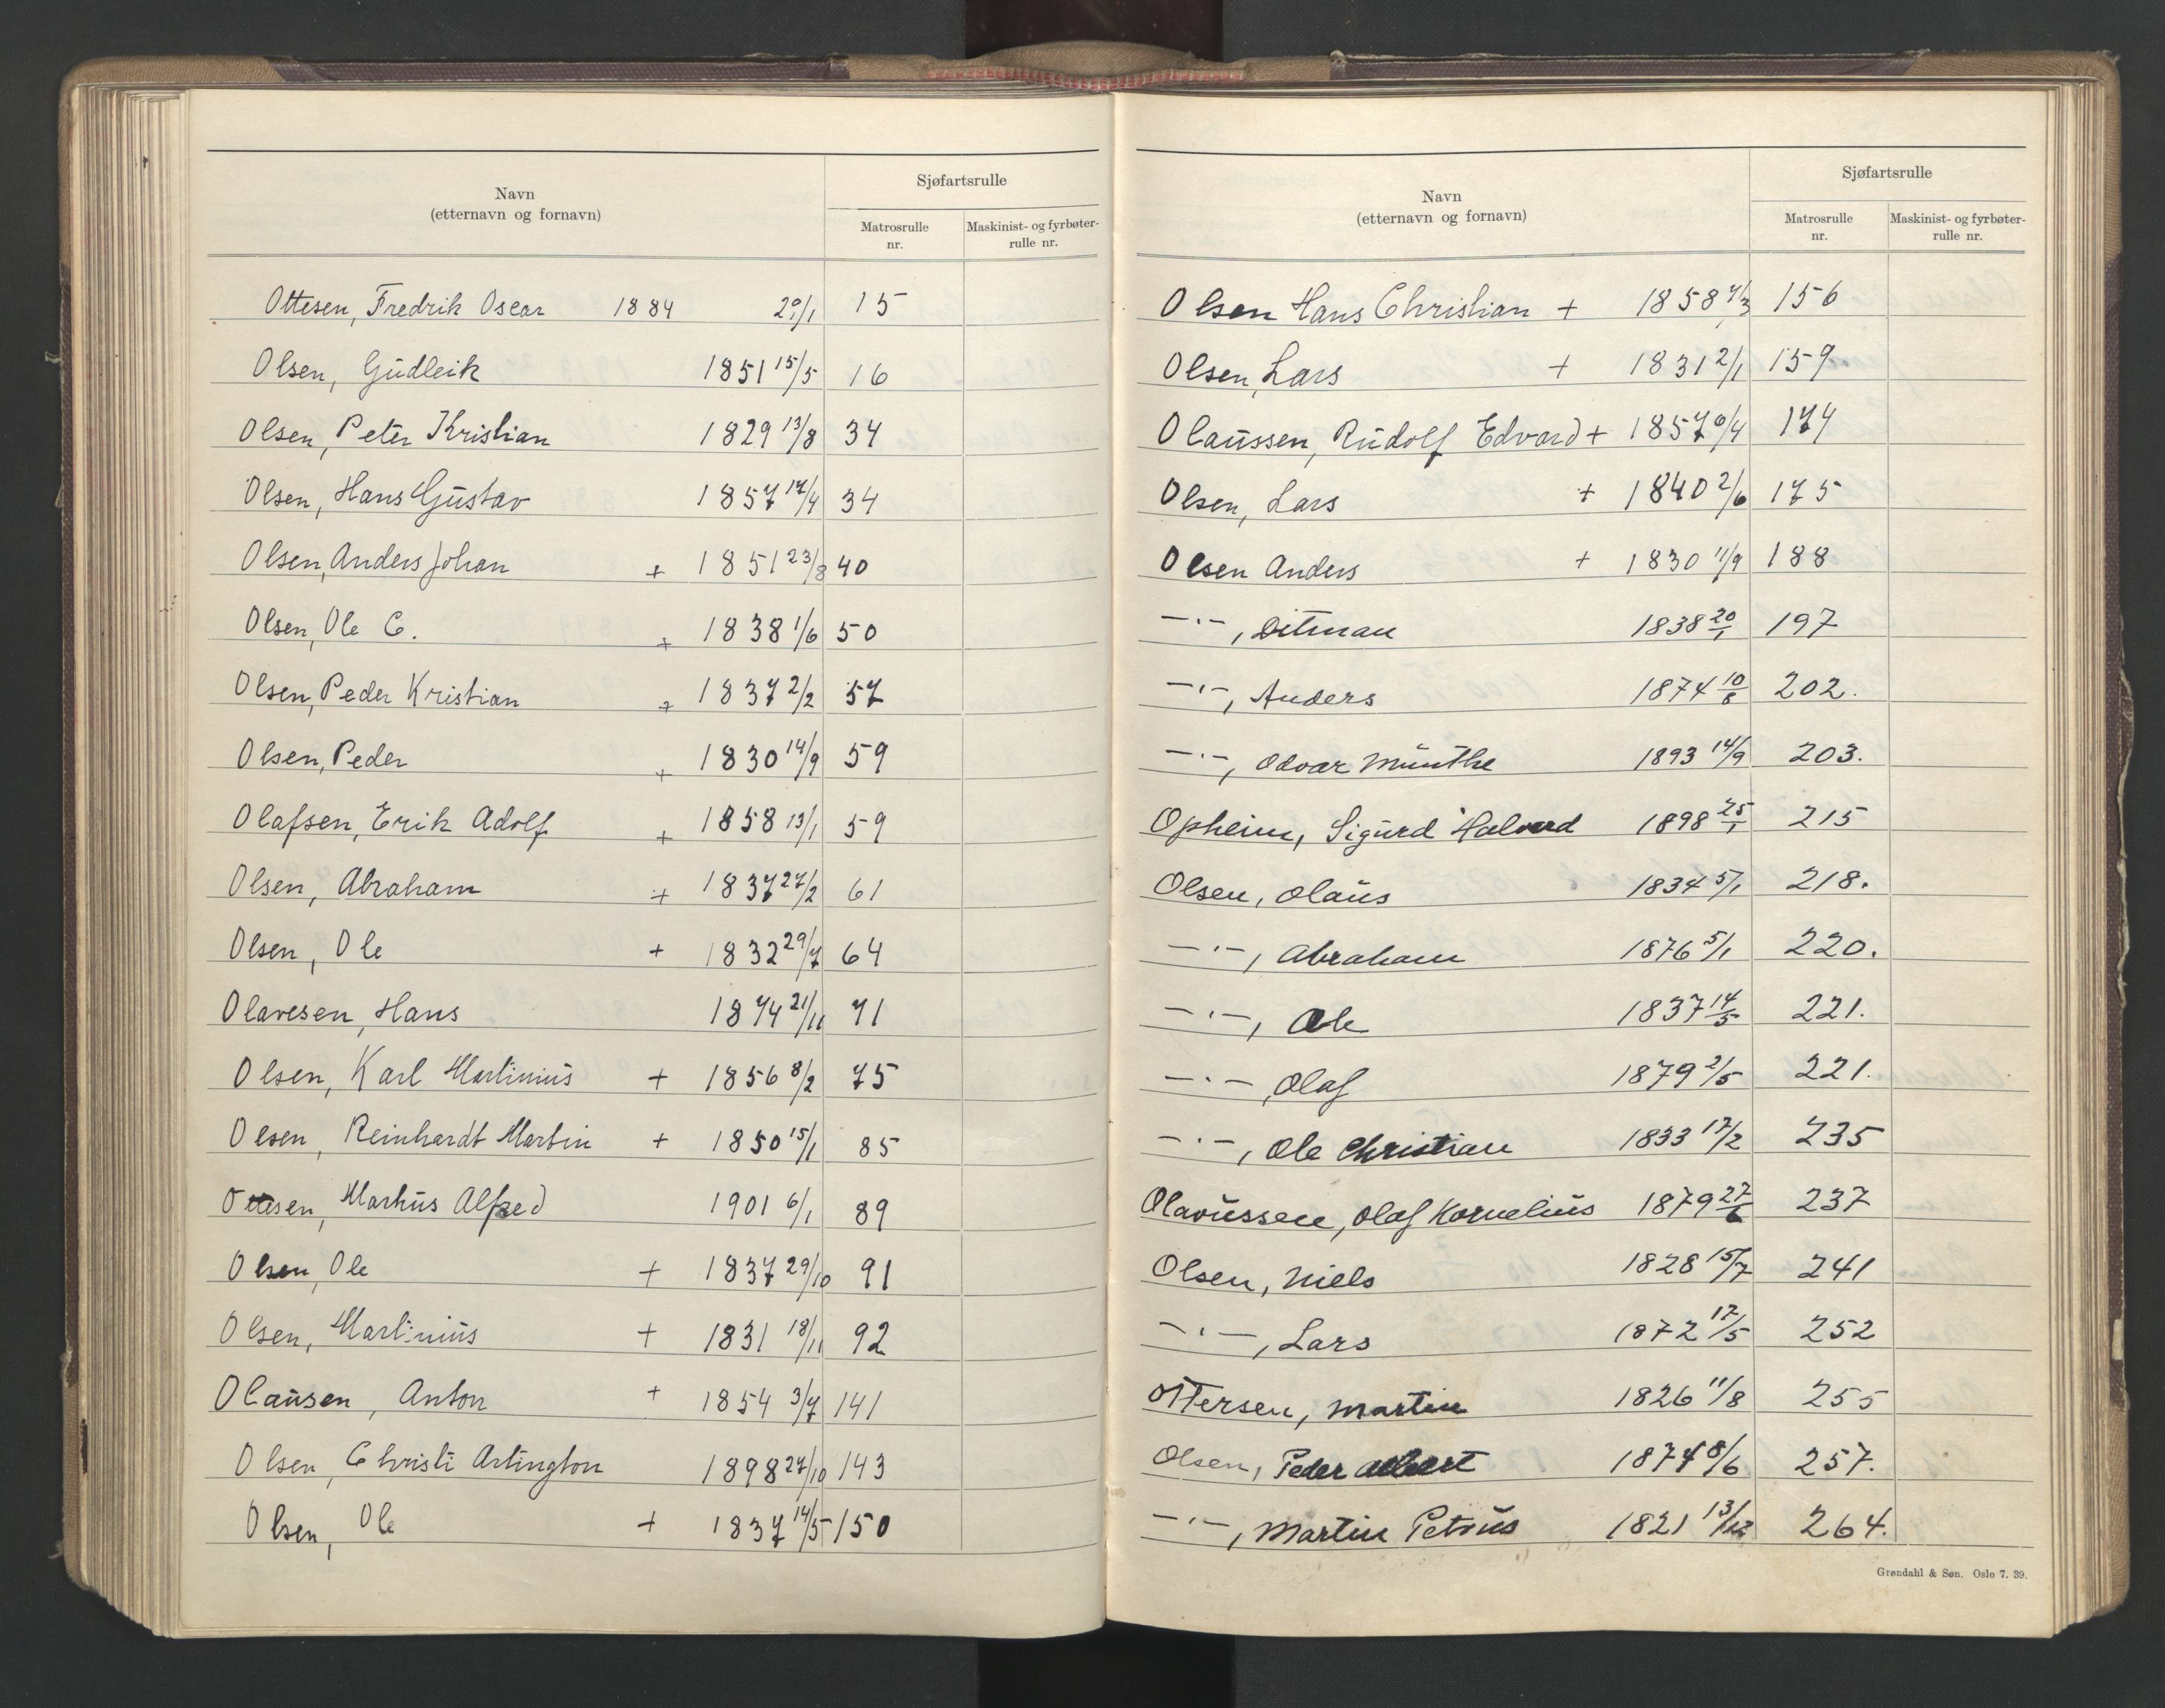 Navn
(etternavn og fornavn)
Sjøfartsrulle
Matrosrulle
nr.
Maskinist- og fyrbøter-
rulle nr.
Ottesen, Fredrik Oscar 1884 29/1 15
Olsen, Gudleik 1851 15/5 16
Olsen, Peter Kristian 1829 13/8 34
Olsen, Hans Gustav 1857 17/4 34
Olsen, Anders Johan + 1851 23/8 40
Olsen, Ole C. + 1838 1/6 50
Olsen, Peder Kristian + 1837 2/2 57
Olsen, Peder + 1830 14/9 59
Olafsen, Erik Adolf + 1858 13/1 59
Olsen, Abraham + 1837 27/2 61
Olsen, Ole + 1832 29/7 64
Olavesen, Hans 1874 21/11 71
Olsen, Karl Martinius + 1856 8/2 75
Olsen, Reinhardt Martin + 1850 15/1 85
Ottesen, Markus Alfred 1901 6/1 89
Olsen, Ole + 1837 29/10 91
Olsen, Martinius + 1831 18/11 92
Olausen, Anton + 1854 3/7 141
Olsen, Christi Artington 1898 27/10 143
Olsen, Ole + 1837 14/5 150
Navn
(etternavn og fornavn)
Sjøfartsrulle
Matrosrulle
nr.
Maskinist- og fyrbøter-
rulle nr.
Olsen Hans Christian + 1858 156
Olsen, Lars + 1831 2/1 159
Olaussen, Rudolf Edvard + 1857 174
Olsen, Lars + 1840 2/6 175
Olsen Anders + 1830 11/9 188
—"—, Ditman 1838 20/1 197
—"—, Anders 1874 10/8 202.
—"—, Odvar Munthe 1893 14/9 203.
Opheim, Sigurd Halvard 1898 25/1 215
Olsen, Olaus 1834 5/1 218.
—"—, Abraham 1876 5/1 220.
—"—, Ole 1837 14/5 221.
—"—, Olaf 1879 2/5 221.
—"—, Ole Christian 1833 17/2 235
Olavussen, Olaf Kornelius 1879 27/6 237
Olsen, Niels 1828 15/7 241
—"—, Lars 1872 17/5 252
Ottersen, Martin 1826 11/8 255
Olsen, Peder Albert 1874 8/6 257.
—"—, Martin Petrus 1821 13/12 264.
Grøndahl & Søn. Oslo 7. 39.